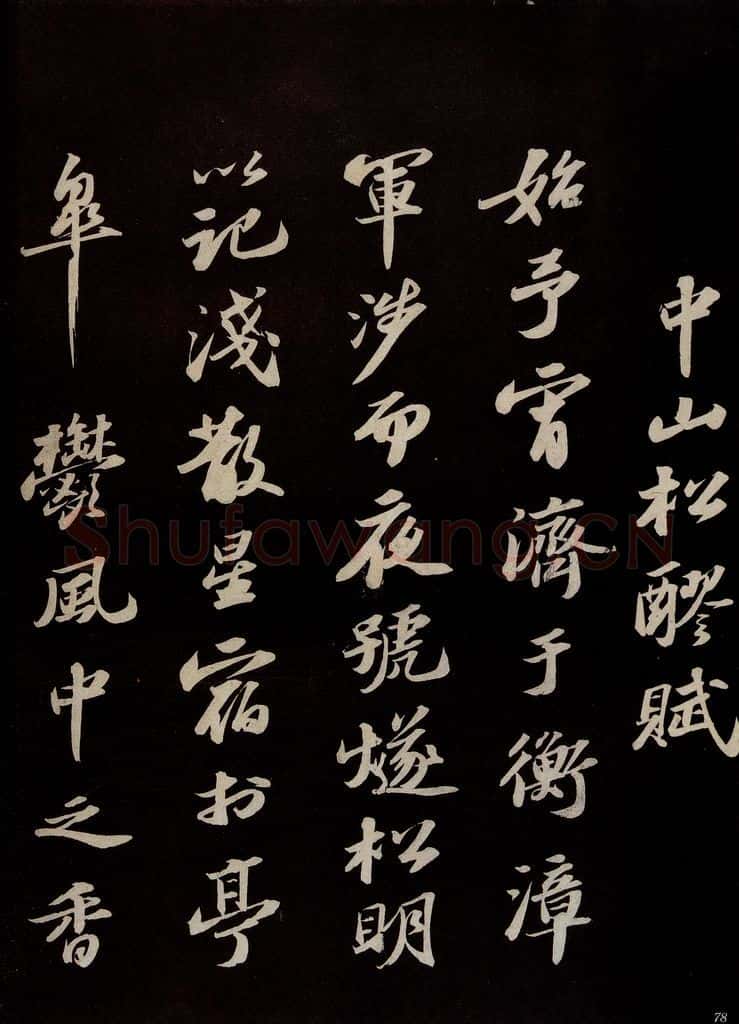 中山松醪賦
始予宵濟于衡漳
軍涉而夜號燧松明
以記淺散星宿於亭
皋鬱風中之香
Shufawang.CN
78